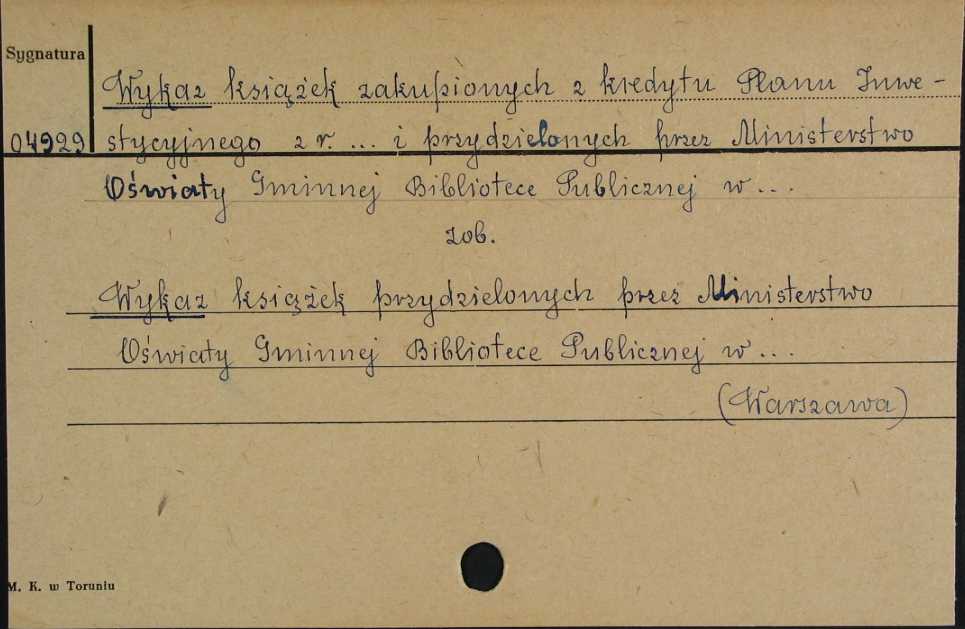 Sygnatura
Wykaz książek zakupionych z kredytu Planu Inwe-
04929 stycyjnego z r. ... i przydzielonych przez Ministerstwo
Oświaty Gminnej Bibliotece Publicznej w ...
zob.
Wykaz książek przydzielonych przez Ministerstwo
Oświaty Gminnej Bibliotece Publicznej w ...
(Warszawa)
M. K. w Toruniu